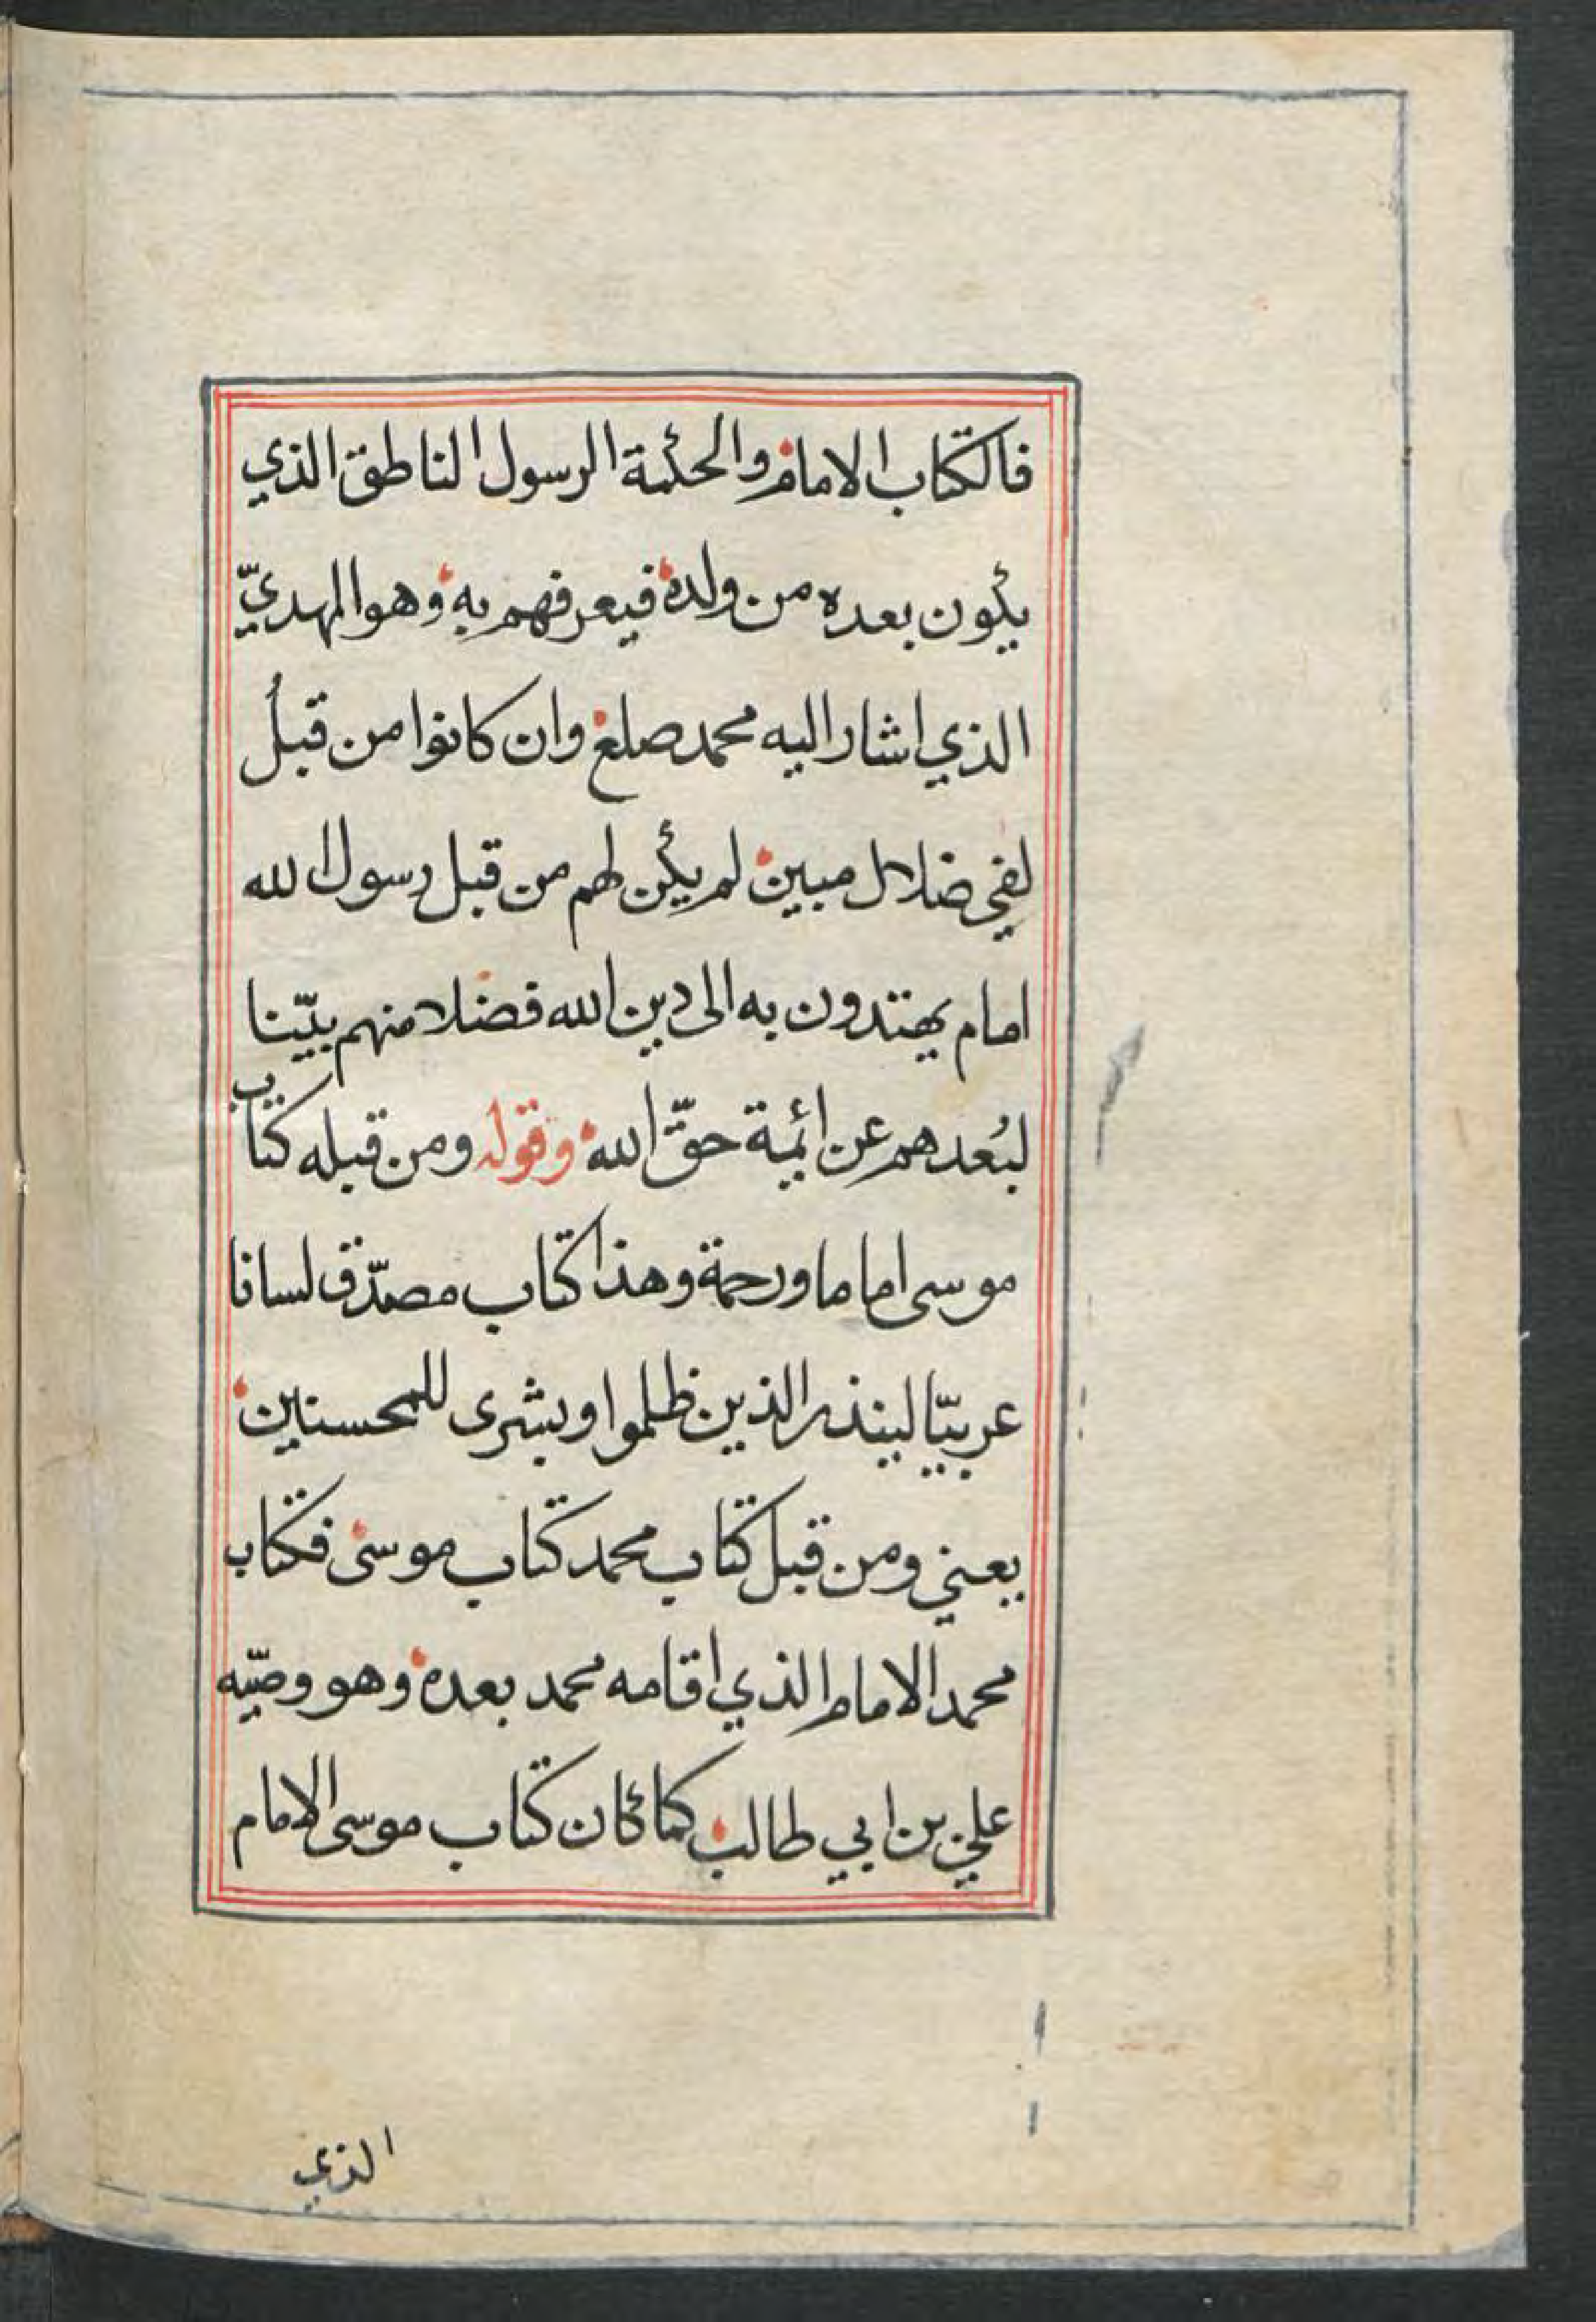 فالكتاب الامام والحكمة الرسول الناطق الذي
يكون بعده من ولده فيعرفهم به وهو المهديّ
الذي اشار اليه محمد صلع وان كانوا من قبلُ
لفي ضلال مبين لم يكن لهم من قبل رسول الله
امام يهتدون به الى دين الله فضلا منهم بيّنا
لبُعدهم عن ائمة حقّ الله وقوله ومن قبله كتاب
موسى اماما ورحمة وهذا كتاب مصدّق لسانا
عربيّا لينذر الذين ظلموا وبشرى للمحسنين
يعني ومن قبل كتاب محمد كتاب موسى فكتاب
محمد الامام الذي اقامه محمد بعده وهو وصيّه
علي بن ابي طالب كما كان كتاب موسى الامام
الذي